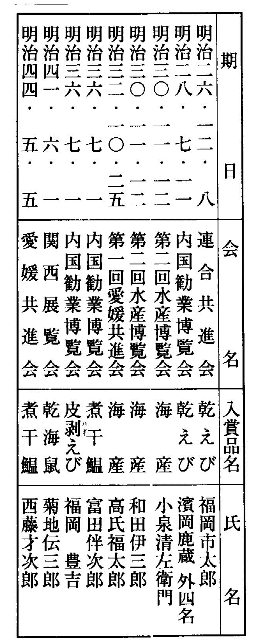 期日 会名 入賞品名 氏名
明治二六・一二・八 連合共進会 乾えび 福岡市太郎
明治二八・七・一一 内国勧業博覧会 乾えび 濱岡鹿蔵 外四名
明治三〇・一一・一二 第二回水産博覧会 海産 小泉清左衛門
明治三〇・一一・一二 第二回水産博覧会 海産 和田伊三郎
明治三二・一〇・二五 第一回愛媛共進会 海産 高氏福太郎
明治三六・七・一 内国勧業博覧会 煮干鰮 富田伴次郎
明治三六・七・一 内国勧業博覧会 皮剥えび 福岡豊吉
明治四一・六・一 関西展覧会 乾海鼠 菊地伝三郎
明治四四・五・五 愛媛共進会 煮干鰮 西藤才次郎